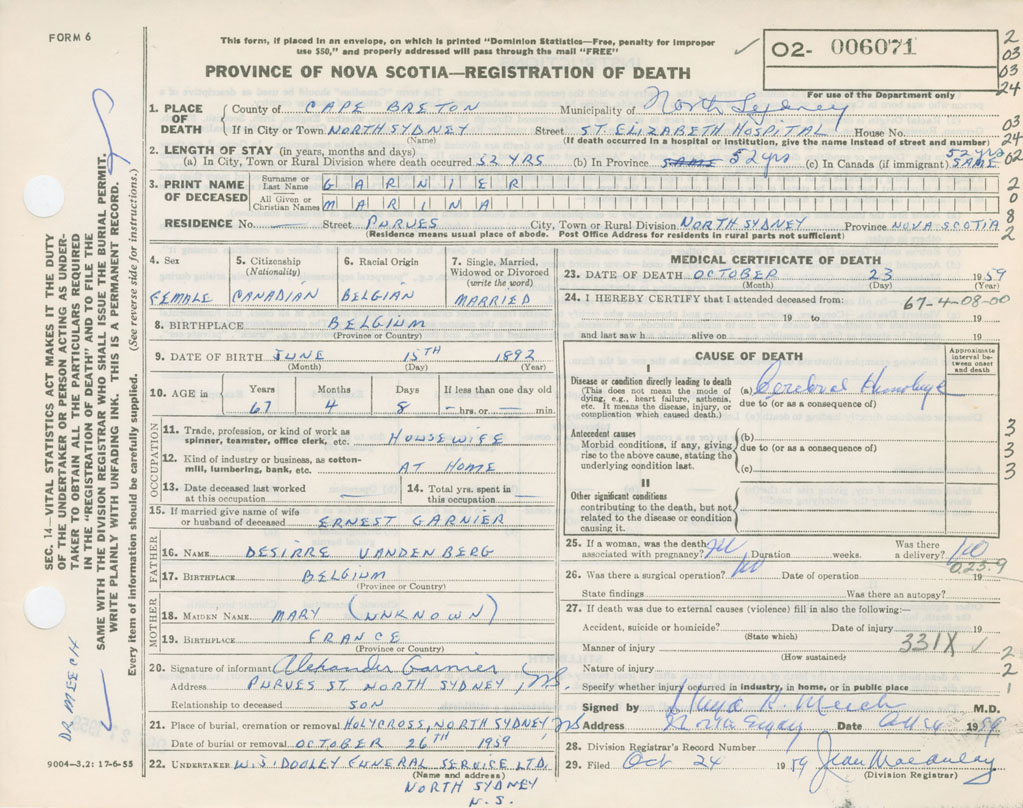 FORM 6
This form, if placed in an envelope, on which is printed "Dominion Statistics—Free, penalty for improper
use $50," and properly addressed will pass through the mail "FREE"
PROVINCE OF NOVA SCOTIA—REGISTRATION OF DEATH
02- 006071
For use of the Department only
2
03
03
24
03
24
02
2
0
8
2
1. PLACE OF DEATH
County of CAPE BRETON Municipality of North Sydney
If in City or Town NORTH SYDNEY Street ST. ELIZABETH HOSPITAL House No.
(Name) (If death occurred in a hospital or institution, give the name instead of street and number)
2. LENGTH OF STAY (in years, months and days)
(a) In City, Town or Rural Division where death occurred 52 YRS (b) In Province SAME 52 yrs (c) In Canada (if immigrant) 52 yrs SAME
3. PRINT NAME OF DECEASED
Surname or Last Name GARNIER
All Given or Christian Names MARINA
RESIDENCE No. — Street PURVES City, Town or Rural Division NORTH SYDNEY Province NOVA SCOTIA
(Residence means usual place of abode. Post Office Address for residents in rural parts not sufficient)
4. Sex
FEMALE
5. Citizenship (Nationality)
CANADIAN
6. Racial Origin
BELGIAN
7. Single, Married, Widowed or Divorced (write the word)
MARRIED
8. BIRTHPLACE BELGIUM
(Province or Country)
9. DATE OF BIRTH JUNE 15TH 1892
(Month) (Day) (Year)
10. AGE in Years Months Days If less than one day old
67 4 8 — hrs. or — min.
OCCUPATION
11. Trade, profession, or kind of work as spinner, teamster, office clerk, etc. HOUSEWIFE
12. Kind of industry or business, as cotton-mill, lumbering, bank, etc. AT HOME
13. Date deceased last worked at this occupation —
14. Total yrs. spent in this occupation —
15. If married give name of wife or husband of deceased ERNEST GARNIER
FATHER
16. NAME DESIRRE VANDENBERG
17. BIRTHPLACE BELGIUM
(Province or Country)
MOTHER
18. MAIDEN NAME MARY (UNKNOWN)
19. BIRTHPLACE FRANCE
(Province or Country)
20. Signature of informant Alexander Garnier
Address PURVES ST. NORTH SYDNEY, N.S.
Relationship to deceased SON
21. Place of burial, cremation or removal HOLYCROSS, NORTH SYDNEY, NS
Date of burial or removal OCTOBER 26TH 1959
22. UNDERTAKER W.J. DOOLEY FUNERAL SERVICE LTD.
(Name and address)
NORTH SYDNEY
N.S.
9004—3,2: 17-6-55
MEDICAL CERTIFICATE OF DEATH
23. DATE OF DEATH OCTOBER 23 1959
(Month) (Day) (Year)
24. I HEREBY CERTIFY that I attended deceased from:
67-4-08-00
19 to 19
and last saw h alive on 19
CAUSE OF DEATH
Approximate interval between onset and death
I
Disease or condition directly leading to death (a) Cerebral Hemorrhage
(This does not mean the mode of dying, e.g., heart failure, asthenia, etc. It means the disease, injury, or complication which caused death.)
due to (or as a consequence of)
Antecedent causes
Morbid conditions, if any, giving rise to the above cause, stating the underlying condition last.
(b)
due to (or as a consequence of)
(c)
3
3
3
II
Other significant conditions
contributing to the death, but not related to the disease or condition causing it.
25. If a woman, was the death associated with pregnancy? No Duration weeks. Was there a delivery? No
023-9
26. Was there a surgical operation? No Date of operation 19
State findings Was there an autopsy?
27. If death was due to external causes (violence) fill in also the following:—
Accident, suicide or homicide? Date of injury 19
(State which)
331X
Manner of injury
(How sustained)
Nature of injury
2
2
1
Specify whether injury occurred in industry, in home, or in public place
Signed by R. Meech M.D.
Address North Sydney Date Oct 24 1959
28. Division Registrar's Record Number
29. Filed Oct 24 1959 Jean Macaulay
(Division Registrar)
SEC. 14—VITAL STATISTICS ACT MAKES IT THE DUTY
OF THE UNDERTAKER OR PERSON ACTING AS UNDER-
TAKER TO OBTAIN ALL THE PARTICULARS REQUIRED
IN THE "REGISTRATION OF DEATH" AND TO FILE THE
SAME WITH THE DIVISION REGISTRAR WHO SHALL ISSUE THE BURIAL PERMIT.
WRITE PLAINLY WITH UNFADING INK. THIS IS A PERMANENT RECORD.
Every item of information should be carefully supplied. (See reverse side for instructions.)
DR MEECH